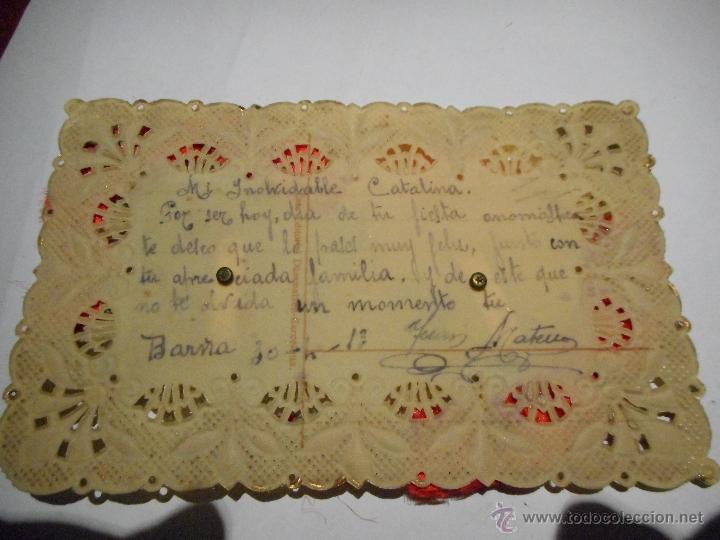 Mi Inolvidable Catalina.
Por ser hoy, dia de tu fiesta onomastica
te deseo que la pases muy feliz, junto con
tu apreciada familia. y de este que
no te olvida un momento tu
Barna 30 - 13
Mateu
© www.todocoleccion.net